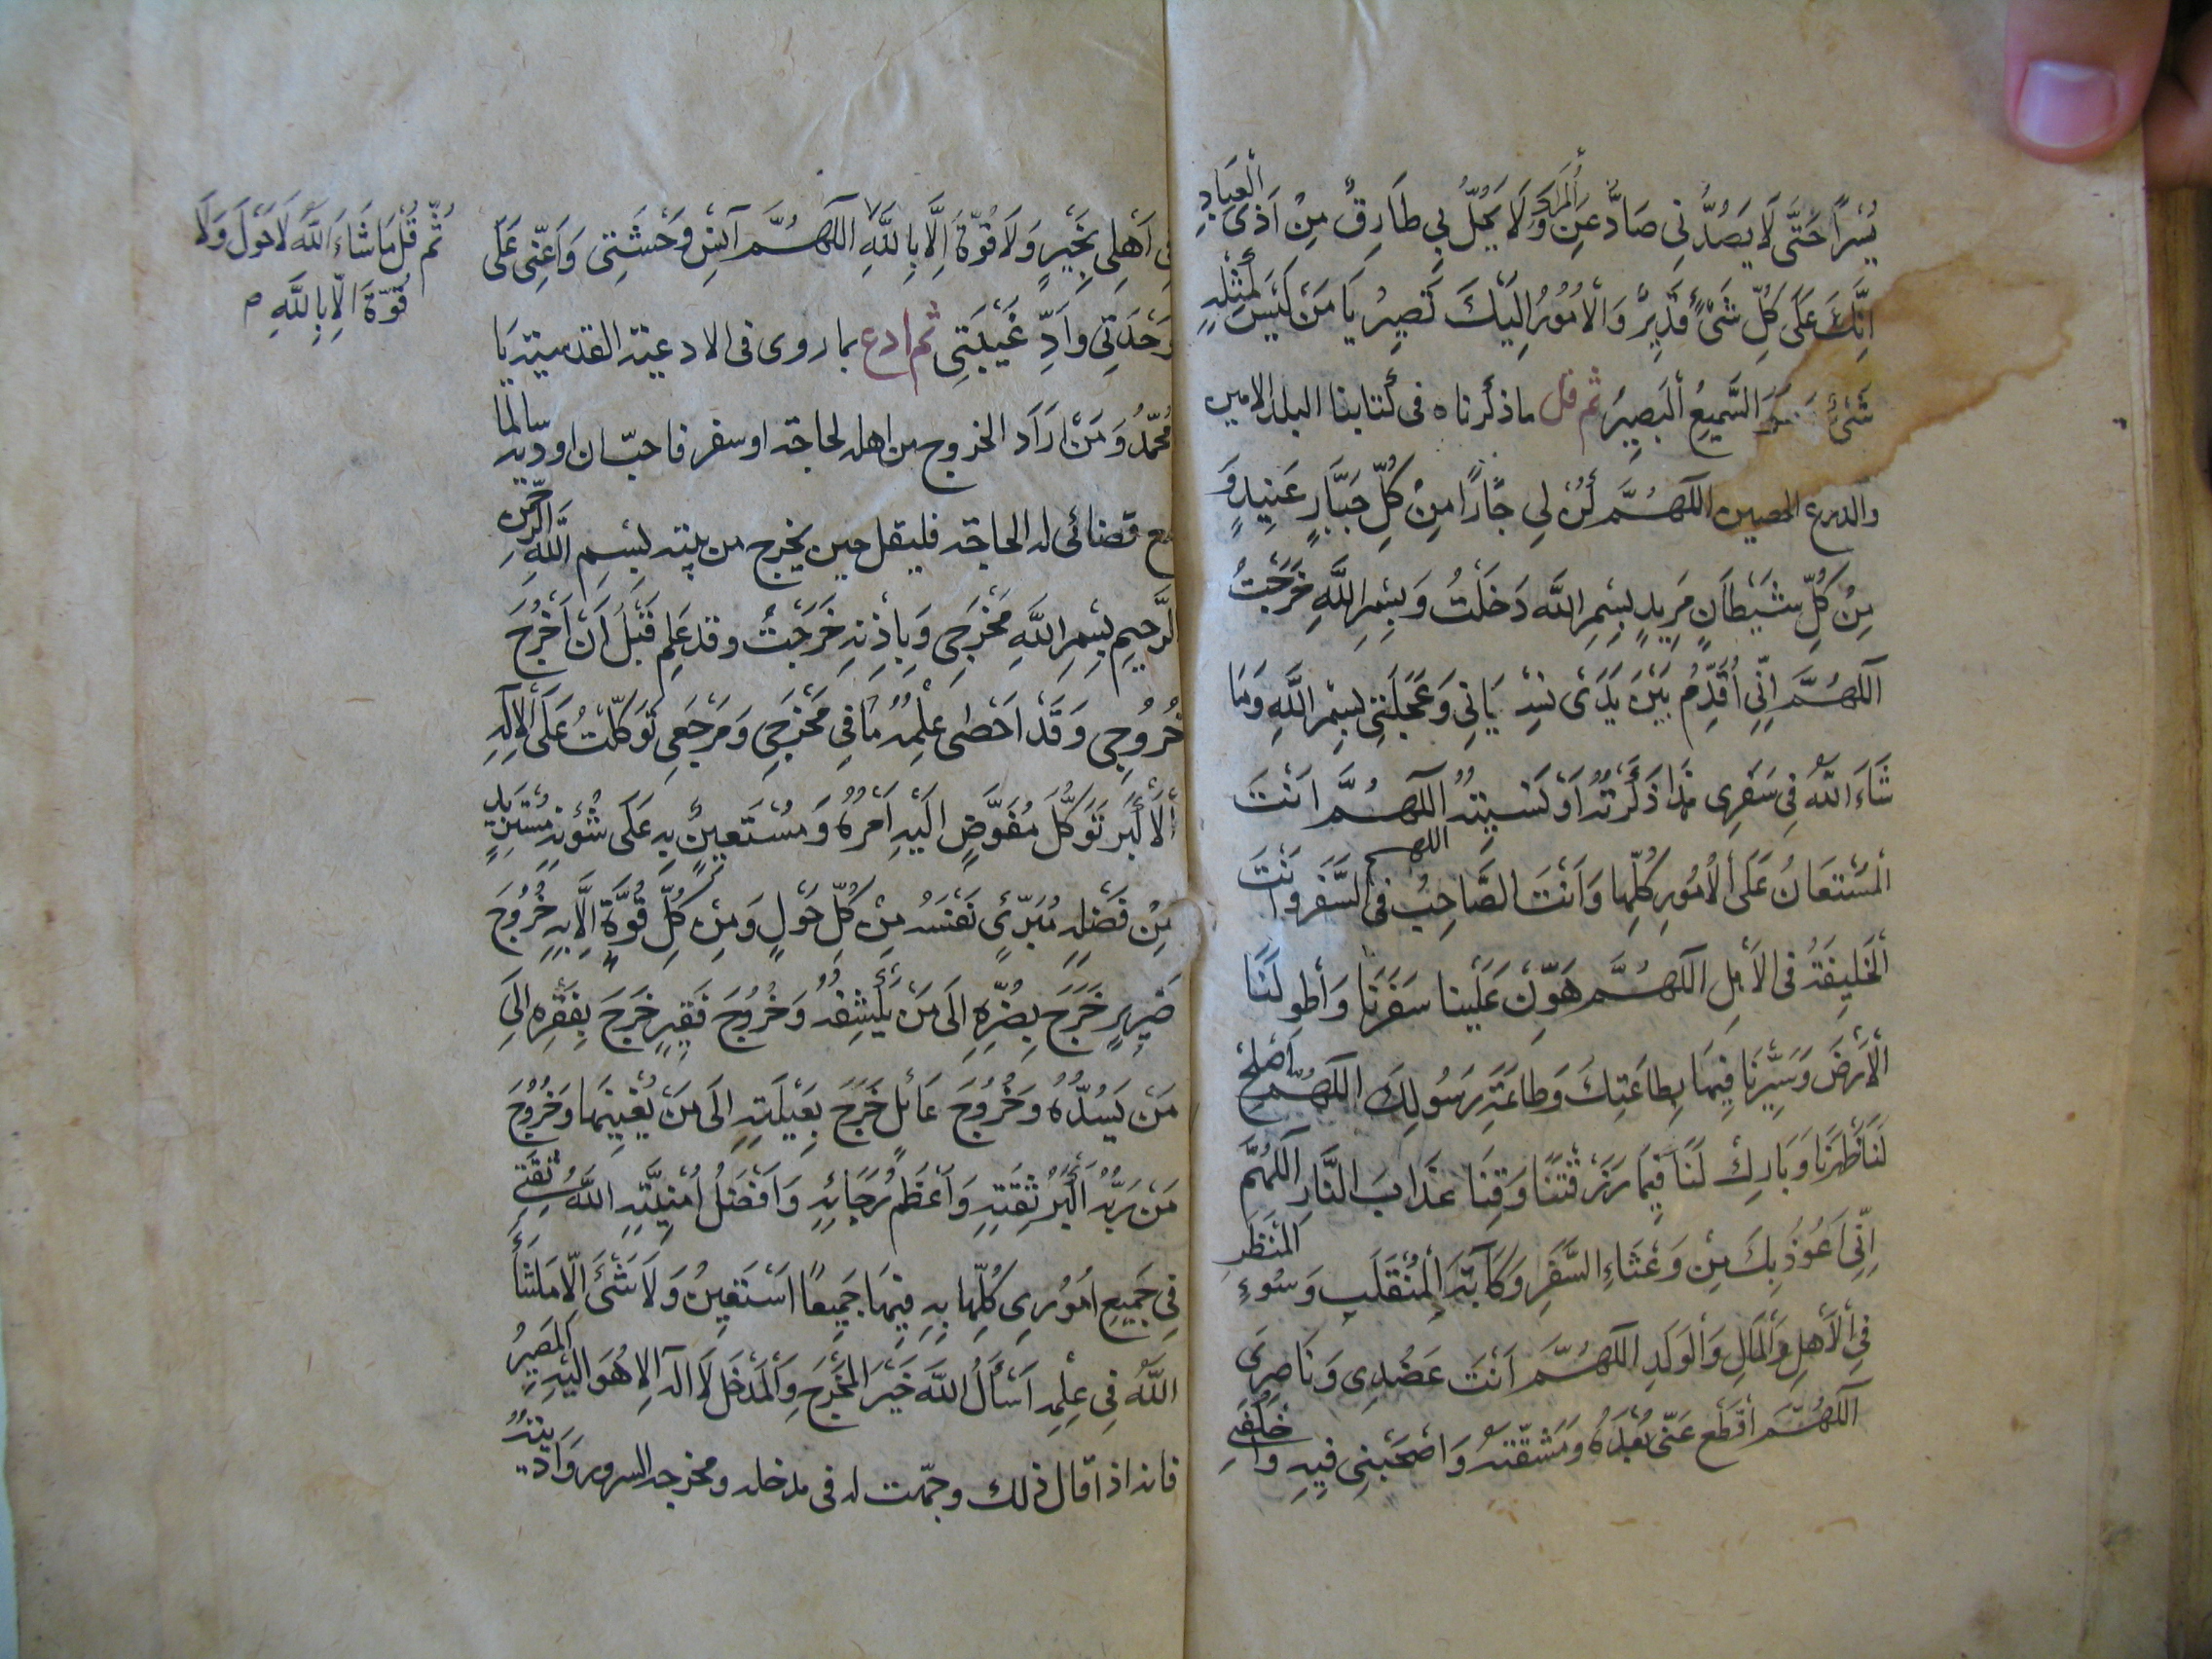 يُسْراً حَتَّى لَا يَصُدَّنِى صَادٌّ عَنِ الْمُرَادِ وَلَا يَحُلَّ بِي طَارِقٌ مِنْ اَذَى الْعِبَادِ
اِنَّكَ عَلَى كُلِّ شَىْءٍ قَدِيرٌ وَالْاُمُورُ اِلَيْكَ تَصِيرُ يَا مَنْ لَيْسَ كَمِثْلِهِ
شَىْءٌ وَهُوَ السَّمِيعُ الْبَصِيرُ ثم قل ماذكرناه فى كتابنا البلد الامين
والدرع الحصين اللَّهُمَّ كُنْ لِي جَارًا مِنْ كُلِّ جَبَّارٍ عَنِيدٍ وَ
مِنْ كُلِّ شَيْطَانٍ مَرِيدٍ بِسْمِ اللَّه دَخَلْتُ وَبِسْمِ اللَّهِ خَرَجْتُ
اَللَّهُمَّ اِنِّى اُقَدِّمُ بَيْنَ يَدَىْ نِسْيَانِى وَعَجَلَتِى بِسْمِ اللَّهِ وَمَا
شَاءَ اللَّهُ فِى سَفَرِى هَذَا ذَكَرْتُهُ اَوْ نَسِيتُهُ اللَّهُمَّ اَنْتَ
الْمُسْتَعَانُ عَلَى الْاُمُورِ كُلِّهَا وَاَنْتَ الصَّاحِبُ فى السَّفَرِ وَاَنْتَ
اللهم
الْخَلِيفَةُ فى الْاَهْلِ اللَّهُمَّ هَوِّنْ عَلَيْنا سَفَرَنَا وَاطْوِ لَنَا
الْاَرْضَ وَسَيِّرْنَا فِيهَا بِطَاعَتِكَ وَطَاعَةِ رَسُولِكَ اللَّهُمَّ اَصْلِحْ
لَنَا ظَهْرَنَا وَبَارِكْ لَنَا فِيمَا رَزَقْتَنَا وَقِنَا عَذَابَ النَّارِ اللَّهُمَّ
اِنِّى اَعُوذُ بِكَ مِنْ وَعْثَاءِ السَّفَرِ وَكَآبَةِ الْمُنْقَلَبِ وَسُوءِ الْمَنْظَرِ
فِى الْاَهْلِ وَالْمَالِ وَالْوَلَدِ اللَّهُمَّ اَنْتَ عَضُدِى وَنَاصِرِى
اَللَّهُمَّ اقْطَعْ عَنِّى بُعْدَهُ وَمَشَقَّتَهُ وَاصْحَبْنِى فِيهِ وَاخْلُفْنِى
فِى اَهْلِى بِخَيْرٍ وَلَا قُوَّةَ اِلَّا بِاللَّهِ اللَّهُمَّ آنِسْ وَحْشَتِى وَاَعِنِّى عَلَى
وَحْدَتِى وَاَدِّ غَيْبَتِى ثم ادع بما روى فى الادعية القدسية يَا
مُحَمَّدُ وَمَنْ اَرَادَ الخروج من اهله لحاجة او سفر فاحبّ ان اودّيه سالما
مع قضائى له الحاجة فليقل حين يخرج من بيته بِسْمِ اللَّهِ الرَّحْمَنِ
الرَّحِيمِ بِسْمِ اللَّهِ مَخْرَجِى وَبِاِذْنِهِ خَرَجْتُ وقد عَلِمَ قَبْلَ اَنْ اَخْرُجَ
خُرُوجِى وَقَدْ اَحْصَى عِلْمُهُ مَا فِى مَخْرَجِى وَمَرْجَعِى تَوَكَّلْتُ عَلَى الْاِلَهِ
الْاَكْبَرِ تَوَكُّلَ مُفَوِّضٍ اِلَيْهِ اَمْرَهُ وَمُسْتَعِينٍ بِهِ عَلَى شُؤُنِهِ مُسْتَزِيدٍ
مِنْ فَضْلِهِ مُبَرِّئٍ نَفْسَهُ مِنْ كُلِّ حَوْلٍ وَمِنْ كُلِّ قُوَّةٍ اِلَّا بِهِ خُرُوجَ
ضَرِيرٍ خَرَجَ بِضُرِّهِ اِلَى مَنْ يَكْشِفُهُ وَخُرُوجَ فَقِيرٍ خَرَجَ بِفَقْرِهِ اِلَى
مَنْ يَسُدُّهُ وَخُرُوجَ عَائِلٍ خَرَجَ بِعَيْلَتِهِ اِلَى مَنْ يُغْنِيهَا وَخُرُوجَ
مَنْ رَبُّهُ اَكْبَرُ ثِقَتِهِ وَاَعْظَمُ رَجَائِهِ وَاَفْضَلُ اُمْنِيَّتِهِ اللَّهُ ثِقَتِى
فِى جَمِيعِ اُمُورِى كُلِّهَا بِهِ فِيهَا جَمِيعًا اَسْتَعِينُ وَلَا شَىْءَ اِلَّا مَا شَاءَ
اللَّهُ فِى عِلْمِهِ اَسْأَلُ اللَّهَ خَيْرَ الْمَخْرَجِ وَالْمَدْخَلِ لَا اِلَهَ اِلَّا هُوَ اِلَيْهِ الْمَصِيرُ
فانه اذا قال ذلك وجّهت له فى مدخله ومخرجه السرور وَاَدَّيْتُهُ
ثُمَّ قُلْ مَا شَاءَ اللَّهُ لَا حَوْلَ وَلَا
قُوَّةَ اِلَّا بِاللَّهِ م